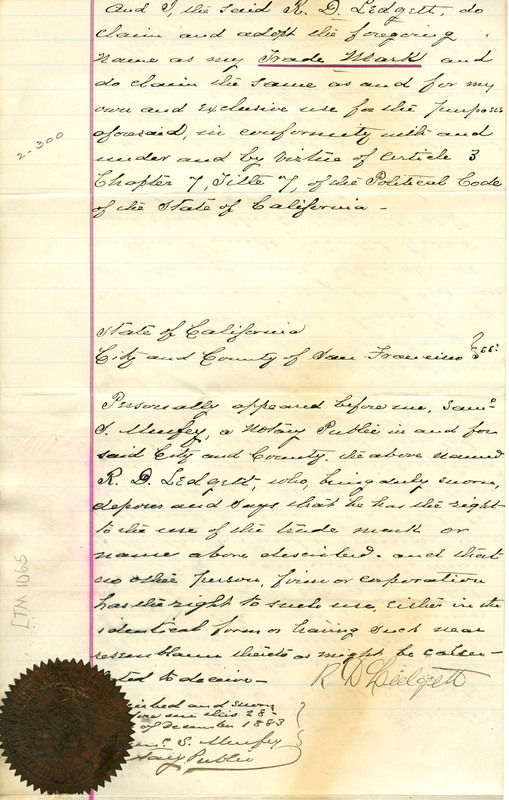 And I, the said R. D. Ledgett, do
claim and adopt the foregoing
name as my Trade Mark and
do claim the same as and for my
own and exclusive use for the purposes
aforesaid, in conformity with and
under and by virtue of Article 3
Chapter 7, Title 7, of the Political Code
of the State of California -
2-300
State of California
City and County of San Francisco } ss:
Personally appeared before me, Saml
S. Murfey, a Notary Public in and for
said City and County. the above named
R. D. Ledgett, who, being duly sworn,
deposes and says that he has the right
to the use of the trade mark or
name above described. and that
no other person, firm or corporation
has the right to such use, either in the
identical form or having such near
resemblance thereto as might be calcu-
lated to deceive -
R D Ledgett
[TM 1065
and sworn
me this 28
of December 1883
S. Murfey
Public